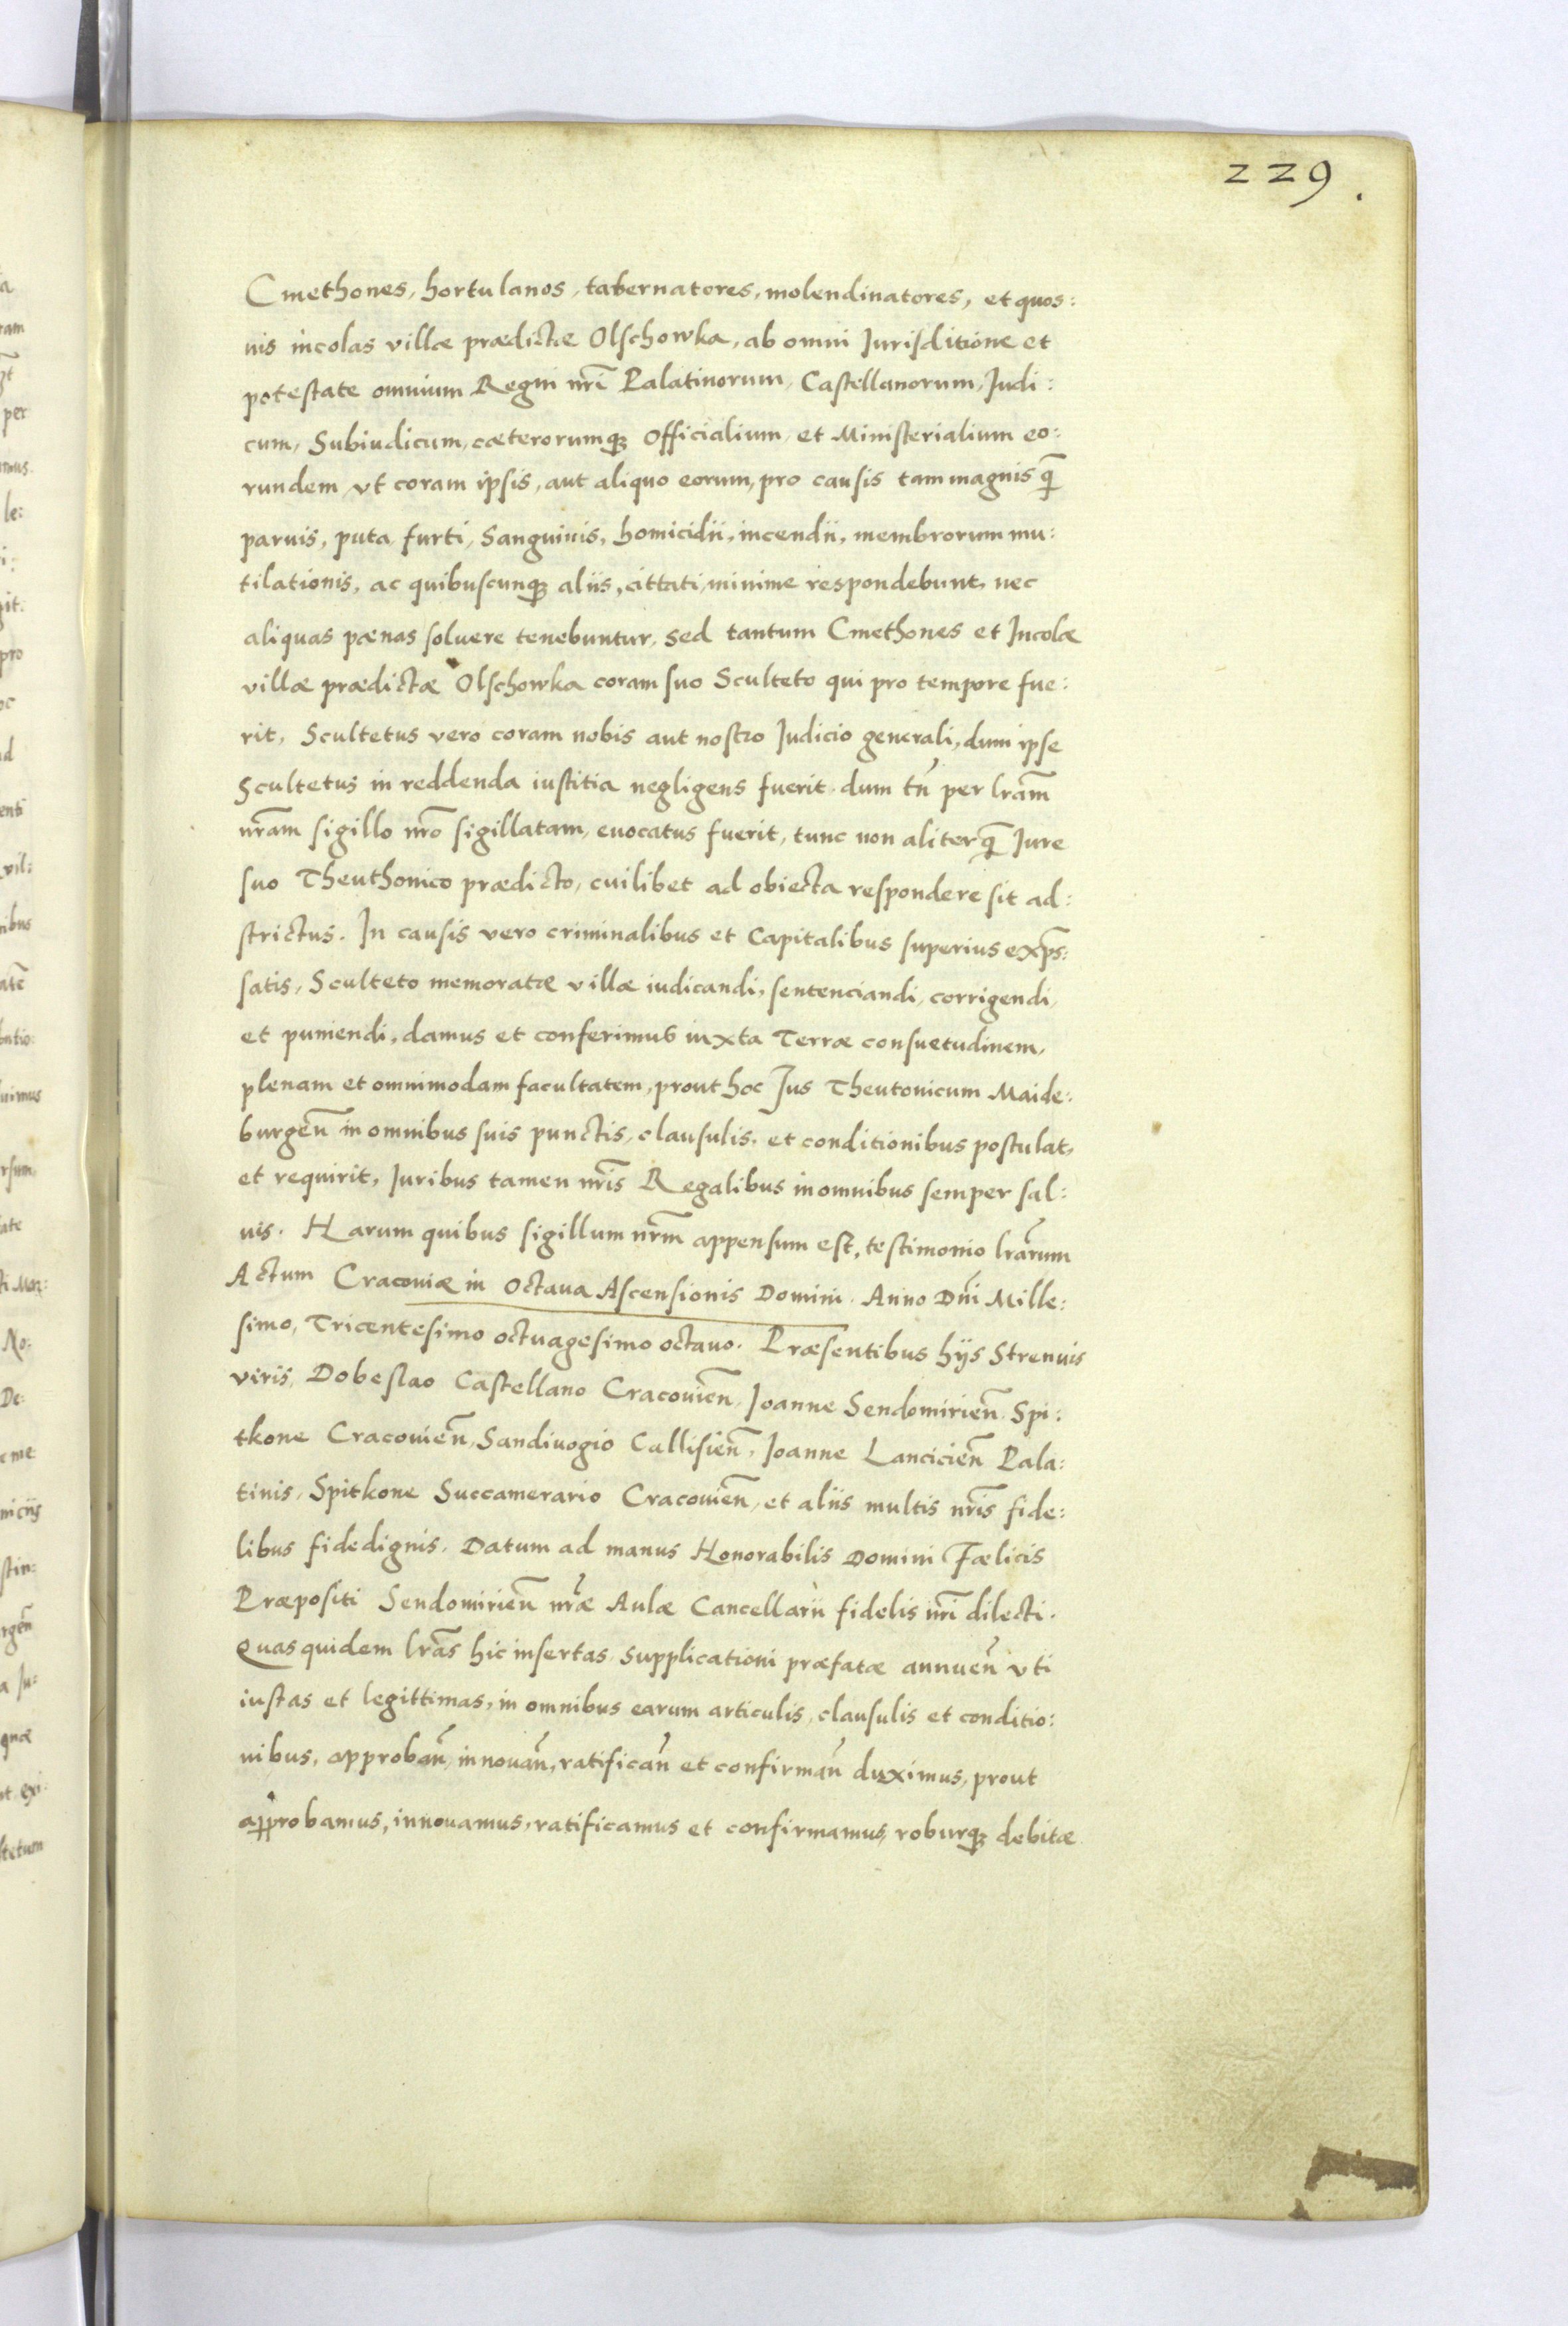 229.
Cmethones, hortulanos, tabernatores, molendinatores, et quos:
uis incolas villæ prædictæ Olschowka, ab omni Jurisditione et
potestate omnium Regni nr̃i Palatinorum, Castellanorum, Judi:
cum, Subiudicum, cæterorumqꝫ Officialium, et Ministerialium eo:
rundem, vt coram ipsis, aut aliquo eorum, pro causis tam magnis q̃
paruis, puta furti, Sanguinis, homicidii, incendii, membrorum mu:
tilationis, ac quibuscunqꝫ aliis, cittati, minime respondebunt, nec
aliquas pænas soluere tenebuntur, sed tantum Cmethones et Incolæ
villæ prædictæ Olschowka coram suo Sculteto qui pro tempore fue:
rit, Scultetus vero coram nobis aut nostro Judicio generali, dum ipse
Scultetus in reddenda iustitia negligens fuerit. dum tñ per lr̃am
nr̃am sigillo nr̃o sigillatam, euocatus fuerit, tunc non aliter q̃ Jure
suo Theuthonico prædicto, cuilibet ad obiecta respondere sit ad:
strictus. In causis vero criminalibus et Capitalibus superius exp̃s:
satis, Sculteto memoratæ villæ iudicandi, sentenciandi, corrigendi,
et puniendi, damus et conferimus iuxta Terræ consuetudinem,
plenam et omnimodam facultatem, prout hoc Jus Theutonicum Maide:
burgeñ in omnibus suis punctis, clausulis, et conditionibus postulat,
et requirit, Juribus tamen nr̃is Regalibus in omnibus semper sal:
uis. Harum quibus sigillum nr̃m appensum est, testimonio lr̃arum
Actum Cracouiæ in Octaua Ascensionis Domini. Anno Dñi Mille:
simo, Tricentesimo octuagesimo octauo. Præsentibus hijs Strenuis
viris, Dobeslao Castellano Cracouieñ, Joanne Sendomirieñ Spi:
tkone Cracouieñ, Sandiuogio Callisieñ, Joanne Lancicieñ Pala:
tinis, Spitkone Succamerario Cracouieñ, et aliis multis nr̃is fide:
libus fidedignis. Datum ad manus Honorabilis Domini Fælicis
Præpositi Sendomirieñ nr̃æ Aulæ Cancellarii fidelis nr̃i dilecti.
Quas quidem lr̃as hic insertas supplicationi præfatæ annueñ vti
iustas et legittimas, in omnibus earum articulis, clausulis et conditio:
nibus, approbañ, innouañ, ratificañ et confirmañ duximus, prout
approbamus, innouamus, ratificamus et confirmamus, roburqꝫ debitæ